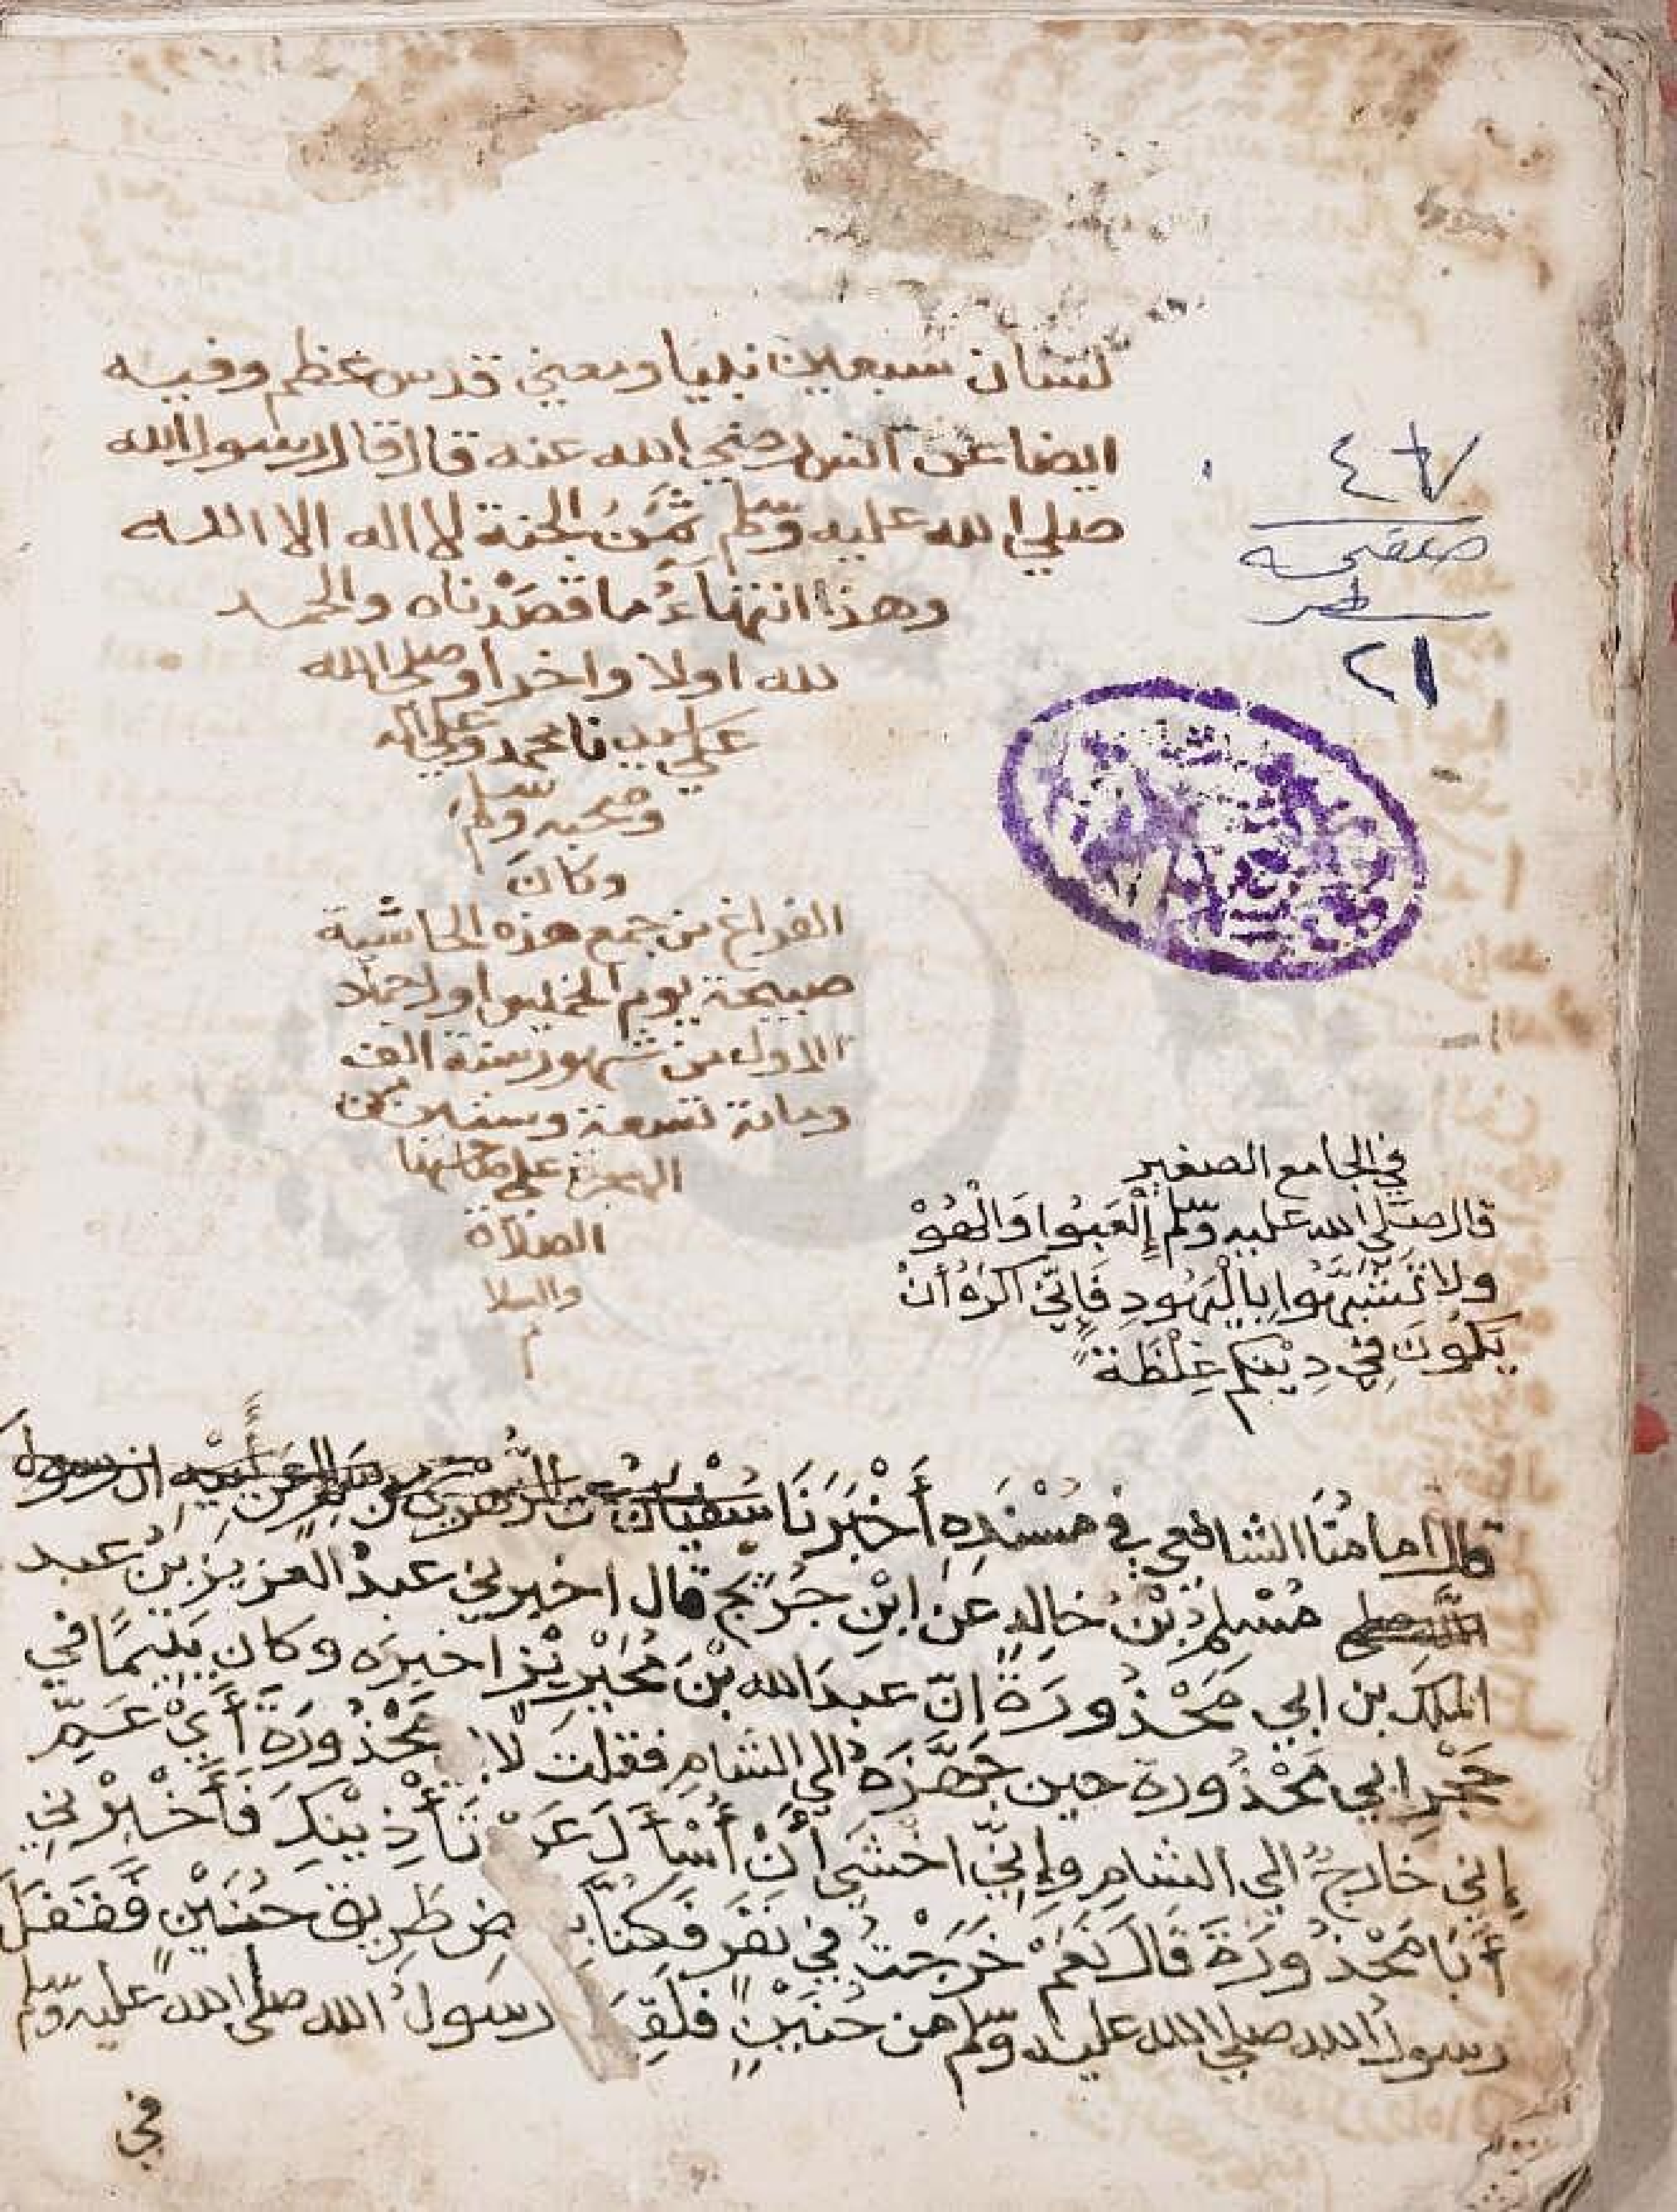 لسان سبعين نبيا ومعني قدس عظم وفيه
ايضا عن انس رضي الله عنه قال قال رسول الله
صلي الله عليه وسلم ثَمَنُ الجنة لا اله الا الله
وهذا انتهاءُ ما قصَدْناه والحمد
لله اولا واخرا وصلي الله
علي سيدنا محمد وعلي اله
وصحبه وسلم
وكان
الفراغ من جمع هذه الحاشية
صبيحة يوم الخميس اول جماد
الاول من شهور سنة الف
ومائة تسعة وستين من
الهجرة علي صاحبها
الصلاة
والسلا
م
٤٦٧
صفحه
سطر
٢١
في الجامع الصغير
قال صلي الله عليه وسلم إِلْعَبُوا وَالْهُوْ
ولا تَشَبَّهُوا بِالْيَهُودِ فَإِنّي اكرَهُ أَنْ
يَكُونَ فِي دِيْنِكم غِلْظَةً
قال امامُنَا الشافعي في مُسْنَدِهِ أَخْبَرَنَا سُفْيَانُ عن الزُّهْرِي عن سَالِمٍ عَنْ أَبِيْهِ ان رسول
مُسْلِمُ بْنُ خالدٍ عَن ابْنِ جُرَيْجٍ قال اخبرني عبدُ العزيزِ بنُ عبد
الملك بن ابي مَحْذُورَةَ انّ عبدَ الله بْنَ مُحَيْرِيْزٍ اخبرَه وكان يَتِيْمًا في
حَجْرِ ابي مَحْذُورة حين جَهَّزَهُ الي الشامِ فقلت لأبي مَحْذُورَةَ أَيْ عَمِّ
إِني خارجٌ الي الشامِ وإِنِّي اخشي أَنْ أُسْأَلَ عَنْ تَأْذِيْنِكَ فَأَخْبِرْنِي
أَبَا مَحْذُورَةَ قال نَعَمْ خَرَجْتُ في نَفَرٍ فَكُنَّا بِ ضِ طَرِيق حُنَيْنٍ فَقَفَلَ
رسولُ الله صلي الله عليه وسلم من حُنَيْنٍ فَلَقِيَ رسولُ الله صلي الله عليه وسلم
في